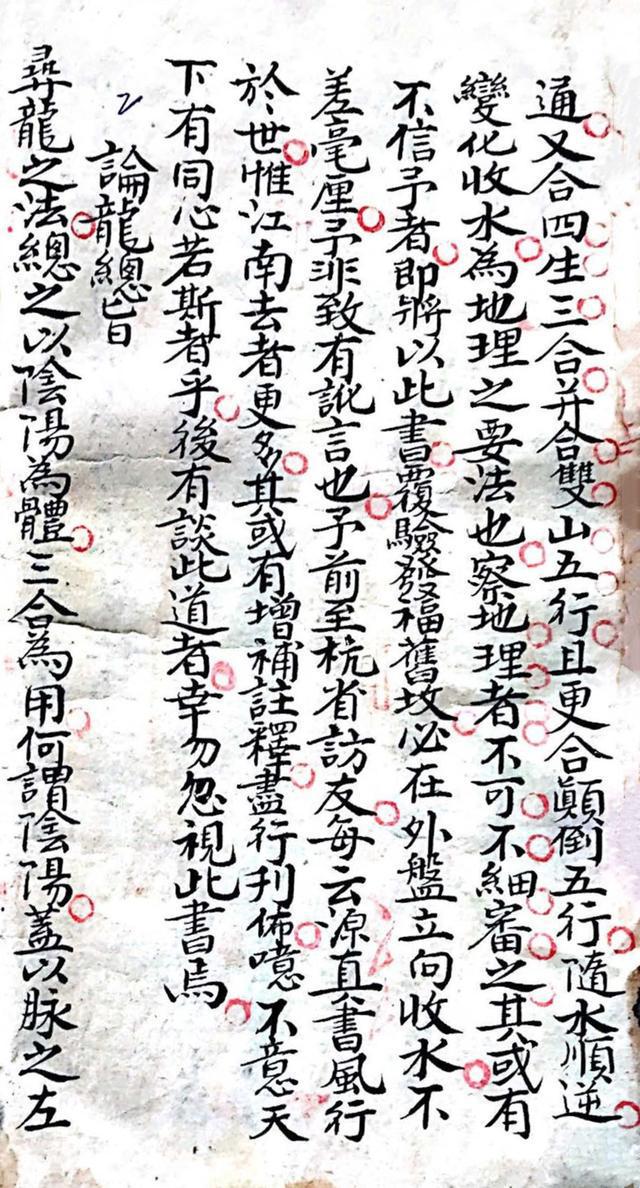 通又合四生三合并合雙山五行且更合顛倒五行隨水順逆
變化收水為地理之要法也察地理者不可不細審之其或有
不信予者即將以此書覆驗發福舊坟必在外盤立向收水不
差毫厘予非致有訛言也予前至杭省訪友每云源真書風行
於世惟江南去者更多其或有增補註釋盡行刊佈噫不意天
下有同心若斯者乎後有談此道者幸勿忽視此書焉
論龍總旨
尋龍之法總之以陰陽為體三合為用何謂陰陽蓋以脉之左